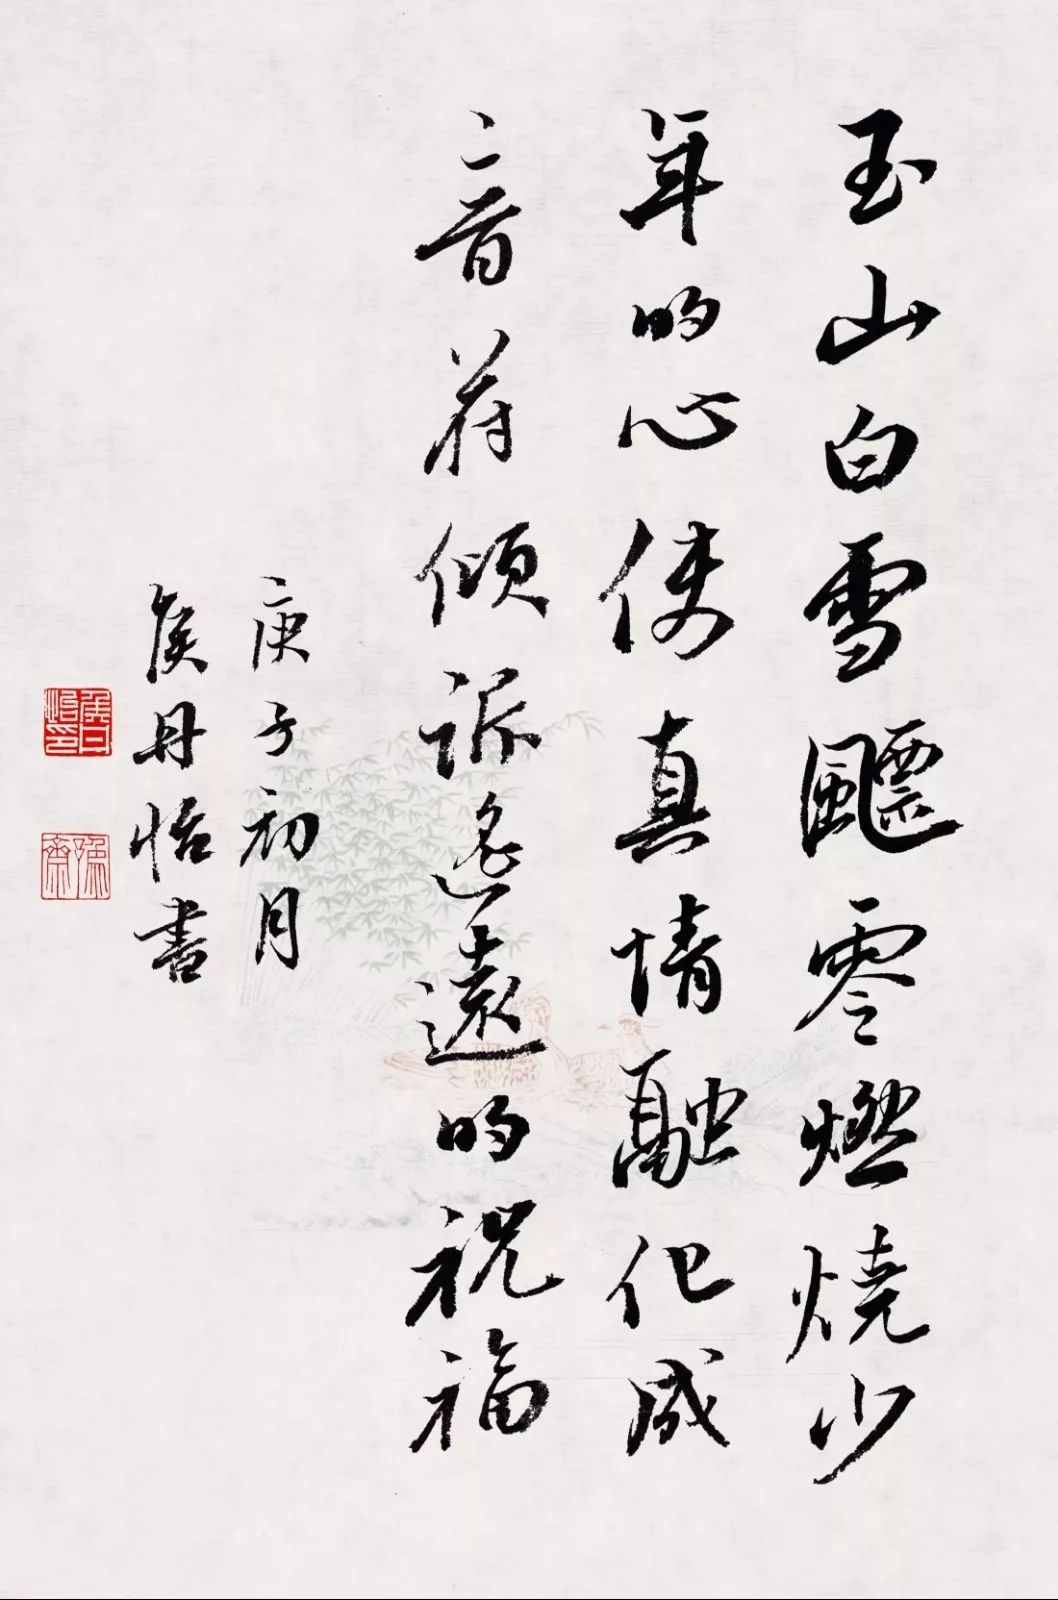 玉山白雪飃零燃燒少
年的心使真情融化成
音符傾訴遙遠的祝福
庚子初月
侯丹怡書
侯丹怡印